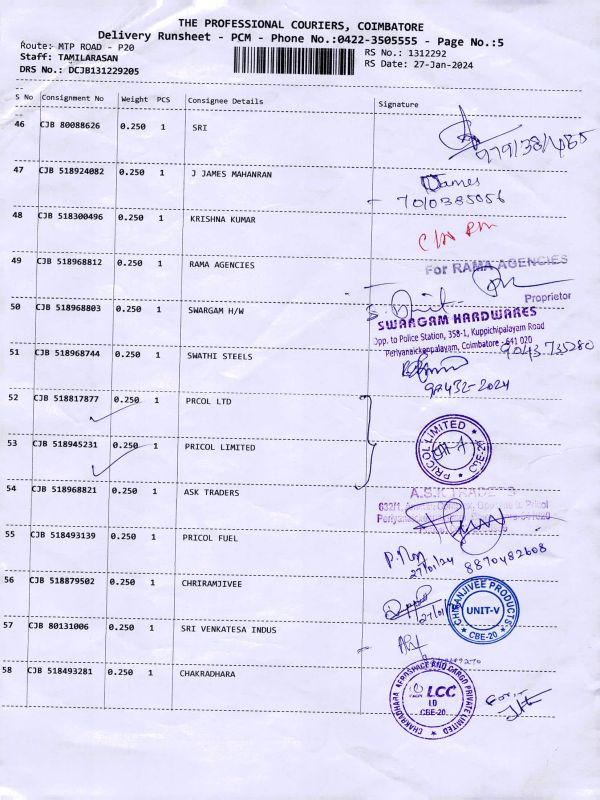 THE PROFESSIONAL COURIERS, COIMBATORE
Delivery Runsheet - PCM - Phone No.:0422-3505555 - Page No.:5
Route: MTP ROAD - P20 RS No.: 1312292
Staff: TAMILARASAN RS Date: 27-Jan-2024
DRS No.: DCJB131229205
S No Consignment No Weight PCS Consignee Details Signature
46 CJB 80088626 0.250 1 SRI
47 CJB 518924082 0.250 1 J JAMES MAHANRAN James
7010385056
48 CJB 518300496 0.250 1 KRISHNA KUMAR
49 CJB 518968812 0.250 1 RAMA AGENCIES For RAMA AGENCIES
Proprietor
50 CJB 518968803 0.250 1 SWARGAM H/W SWARGAM HARDWARES
Opp. to Police Station, 358-1, Kuppichipalayam Road
Periyanaickenpalayam, Coimbatore - 641 020
9043735280
51 CJB 518968744 0.250 1 SWATHI STEELS
98432-2024
52 CJB 518817877 0.250 1 PRCOL LTD
PRICOL LIMITED
CBE-20
53 CJB 518945231 0.250 1 PRICOL LIMITED
54 CJB 518968821 0.250 1 ASK TRADERS
55 CJB 518493139 0.250 1 PRICOL FUEL
27/01/24 8870482608
56 CJB 518879502 0.250 1 CHRIRAMJIVEE
CHIRANJIVEE PRODUCTS
UNIT-V
CBE-20
57 CJB 80131006 0.250 1 SRI VENKATESA INDUS
58 CJB 518493281 0.250 1 CHAKRADHARA
CHAKRADHARA AEROSPACE AND CARGO PRIVATE LIMITED
LCC
CBE-20